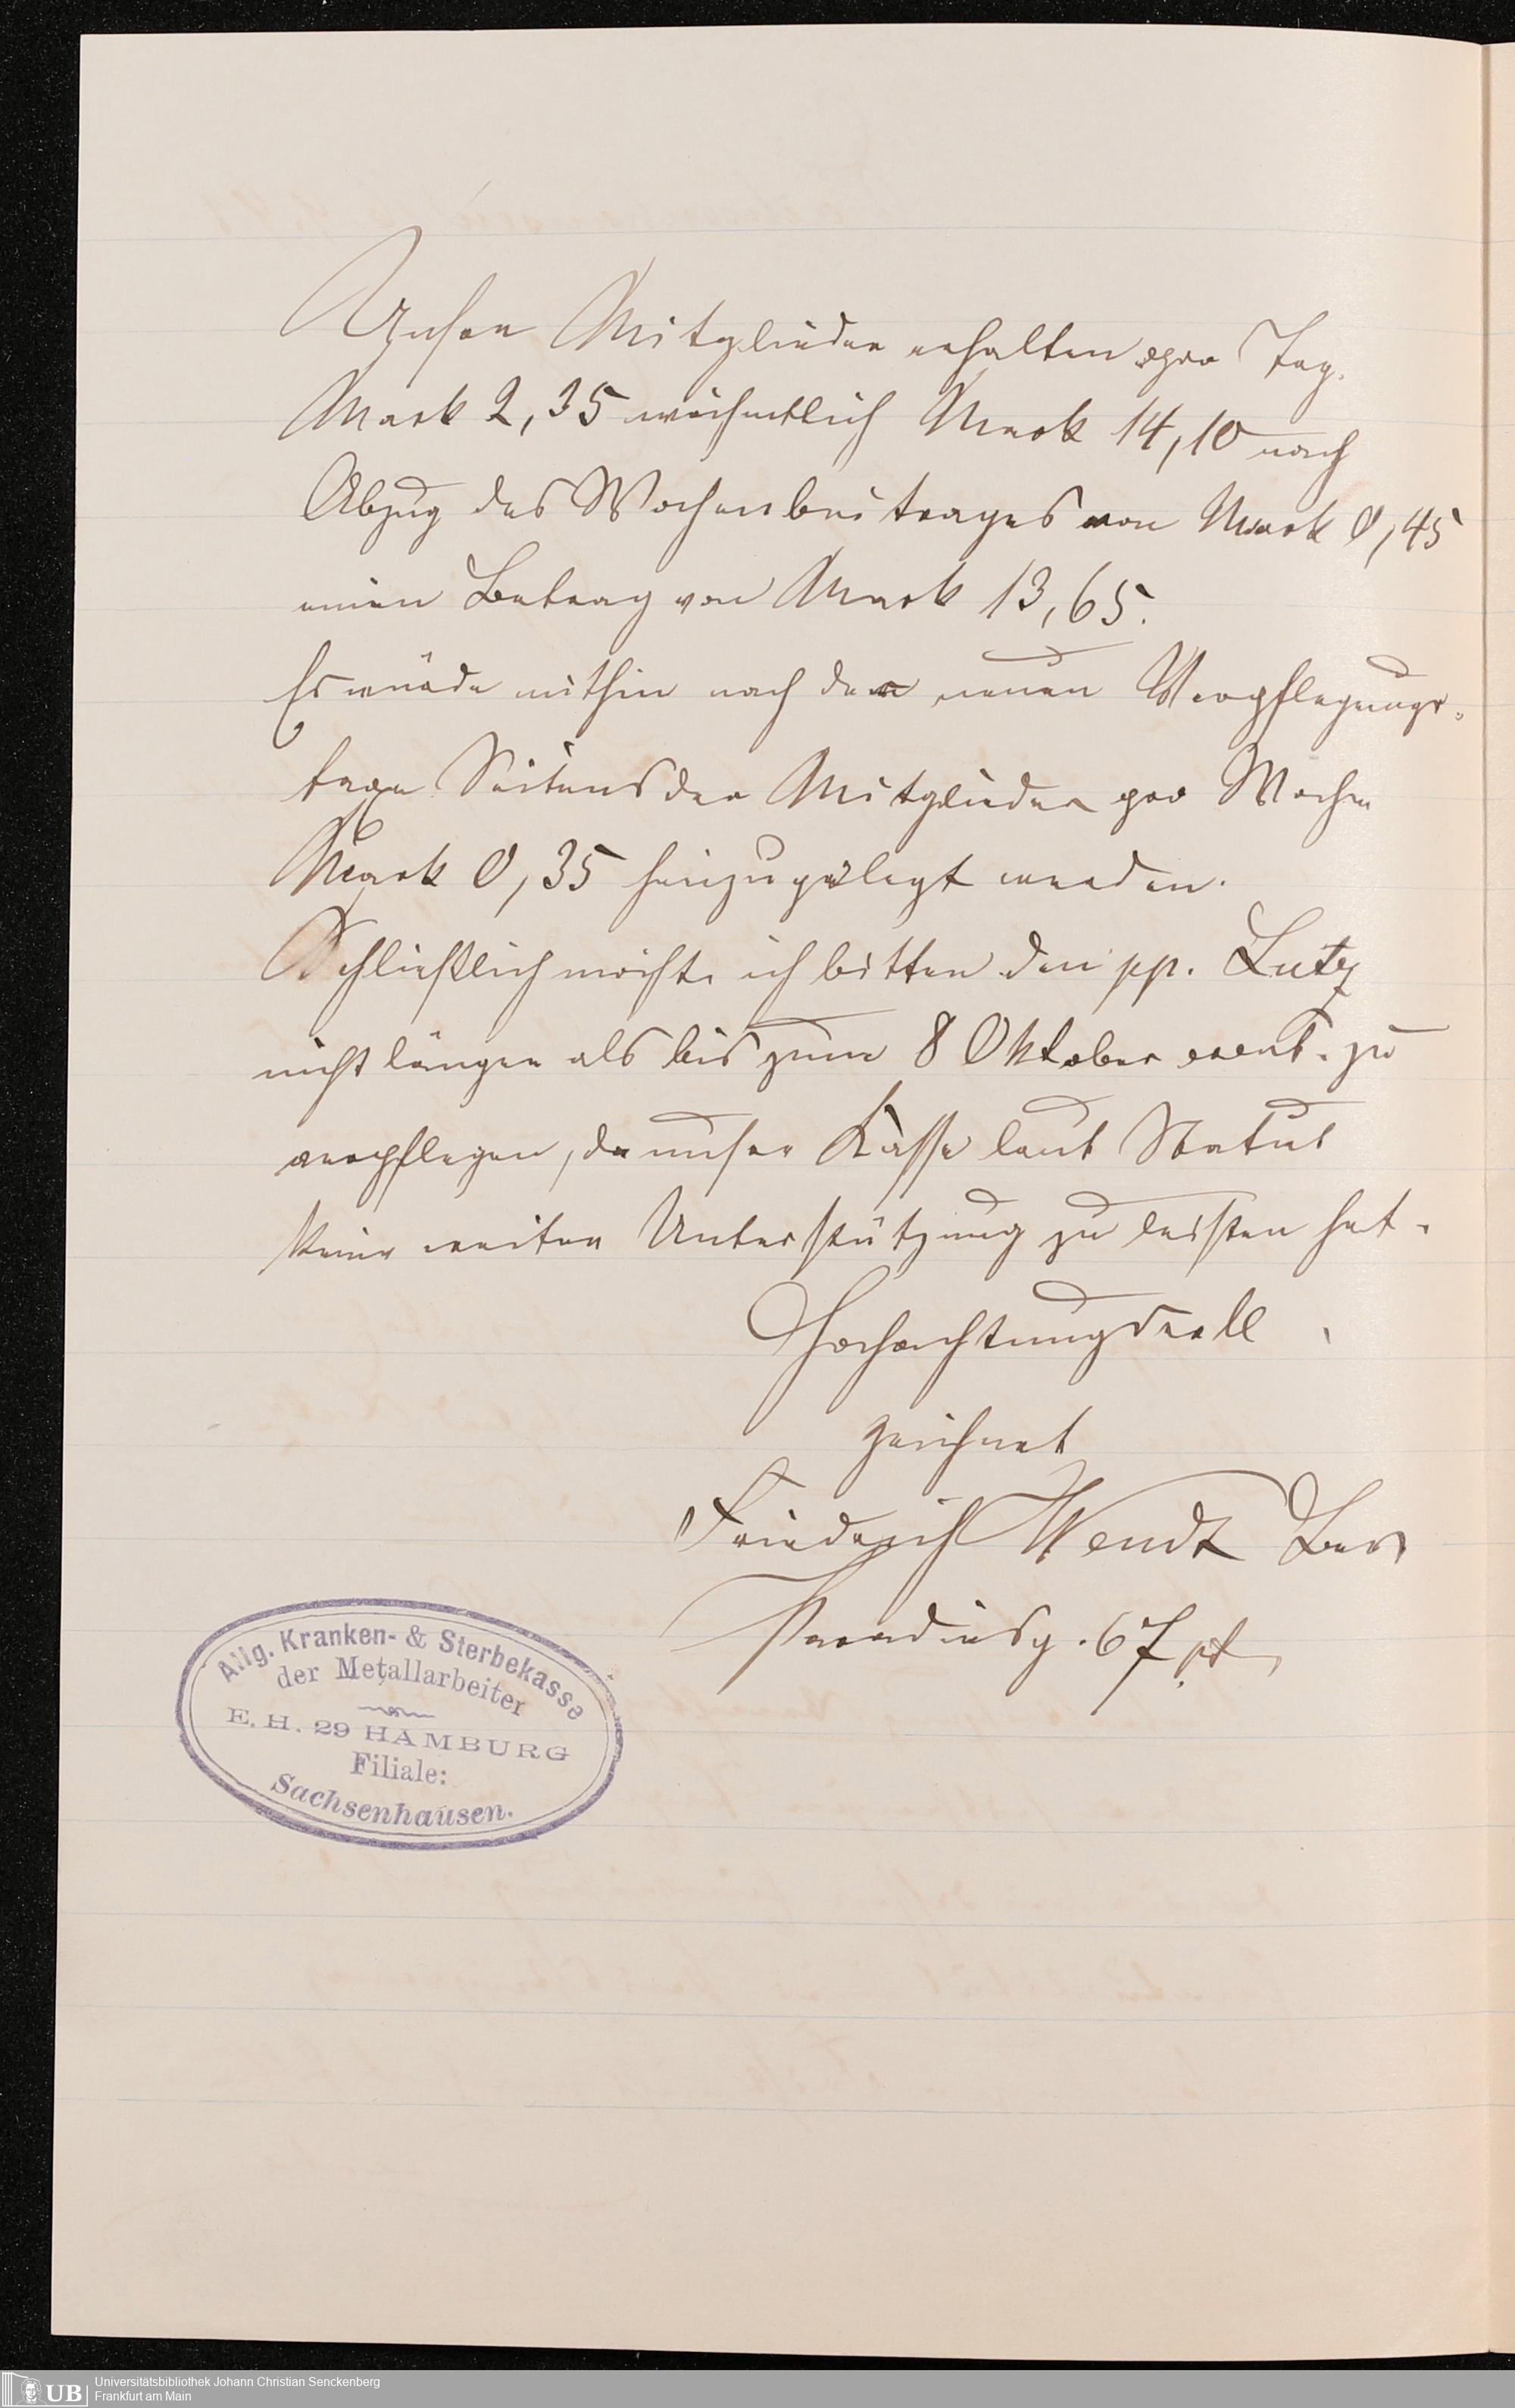 Unsere Mitglieder erhalten pro Tag
Mark 2,35 wöchentlich Mark 14,10 nach
Abzug des Wochenbeitrages von Mark 0,45
einen Betrag von Mark 13,65.
Es würde mithin nach der neuen Verpflegungs-
taxe Seitens der Mitglieder pro Woche
Mark 0,35 hinzugelegt werden.
Schließlich möchte ich bitten den pp. Lutz
nicht länger als bis zum 8 Oktober event. zu
verpflegen, da unser Kasse laut Statut
keine weiter Unterstützung zu leisten hat.
Hochachtungsvoll
zeichnet
Friedrich Wendt
Paradiesg. 67 pt
Allg. Kranken- & Sterbekasse
der Metallarbeiter
E. H. 29 HAMBURG
Filiale:
Sachsenhausen.
UB
Universitätsbibliothek Johann Christian Senckenberg
Frankfurt am Main